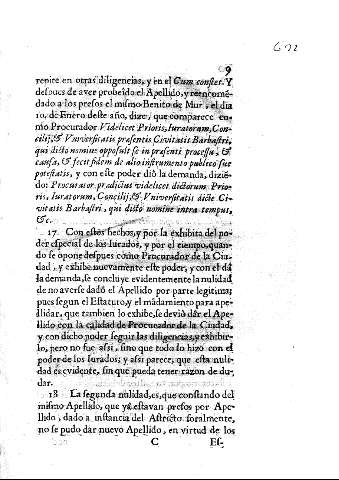 9
repite en otras diligencias, y en el Cum constet. Y
despues de aver probeìdo el Apellido, y reencomē-
dado a los presos el mismo Benito de Mur, el dia
10. de Enero deste año, dize, que comparece co-
mo Procurador Videlicet Prioris, Iuratorum, Con-
cilij, & Vniversitatis præsentis Civitatis Barbastri,
qui dicto nomine opposuit se in præsenti processu, &
causa, & fecit fidem de alio instrumento publico suæ
potestatis, y con este poder diò la demanda, dizië-
do Procurator prædictus videlicet dictorum Prio-
ris, Iuratorum, Concilij, & Vniversitatis dictæ Ci-
vitatis Barbastri, qui dicto nomine intra tempus,
&c.
17. Con estos hechos, y por la exhibita del po-
der especial de los Iurados, y por el tiempo, quan-
do se opone despues como Procurador de la Ciu-
dad, y exhibe nuevamente este poder, y con el dà
la demanda, se concluye evidentemente la nulidad,
de no averse dadó el Apellido por parte legitima;
pues segun el Estatuto, y el mādamiento para ape-
llidar, que tambien lo exhibe, se deviò dàr el Ape-
llido con la calidad de Procurador de la Ciudad,
y con dicho poder seguir las diligencias, y exhibir-
lo, pero no fue assi, sino que todo lo hizo con el
poder de los Iurados; y assi parece, que esta nuli-
dad es evidente, sin que pueda tener razon de du-
dar.
18 La segunda nulidad, es, que constando del
mismo Apellido, que yà estavan presos por Ape-
llido, dado a instancia del Astricto foralmente,
no se pudo dar nuevo Apellido, en virtud de los
C Es-